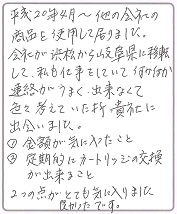 平成20年4月～他の会社の
商品を使用して居りました。
会社が浜松から岐阜県に移転
して、私も仕事をしていて
連絡がうまく出来なくて
色々考えていた折貴社に
出会いました。
① 金額が気に入ったこと
② 定期的にカートリッジの交換
が出来ること
2つの点がとても気に入りました
良かったです。